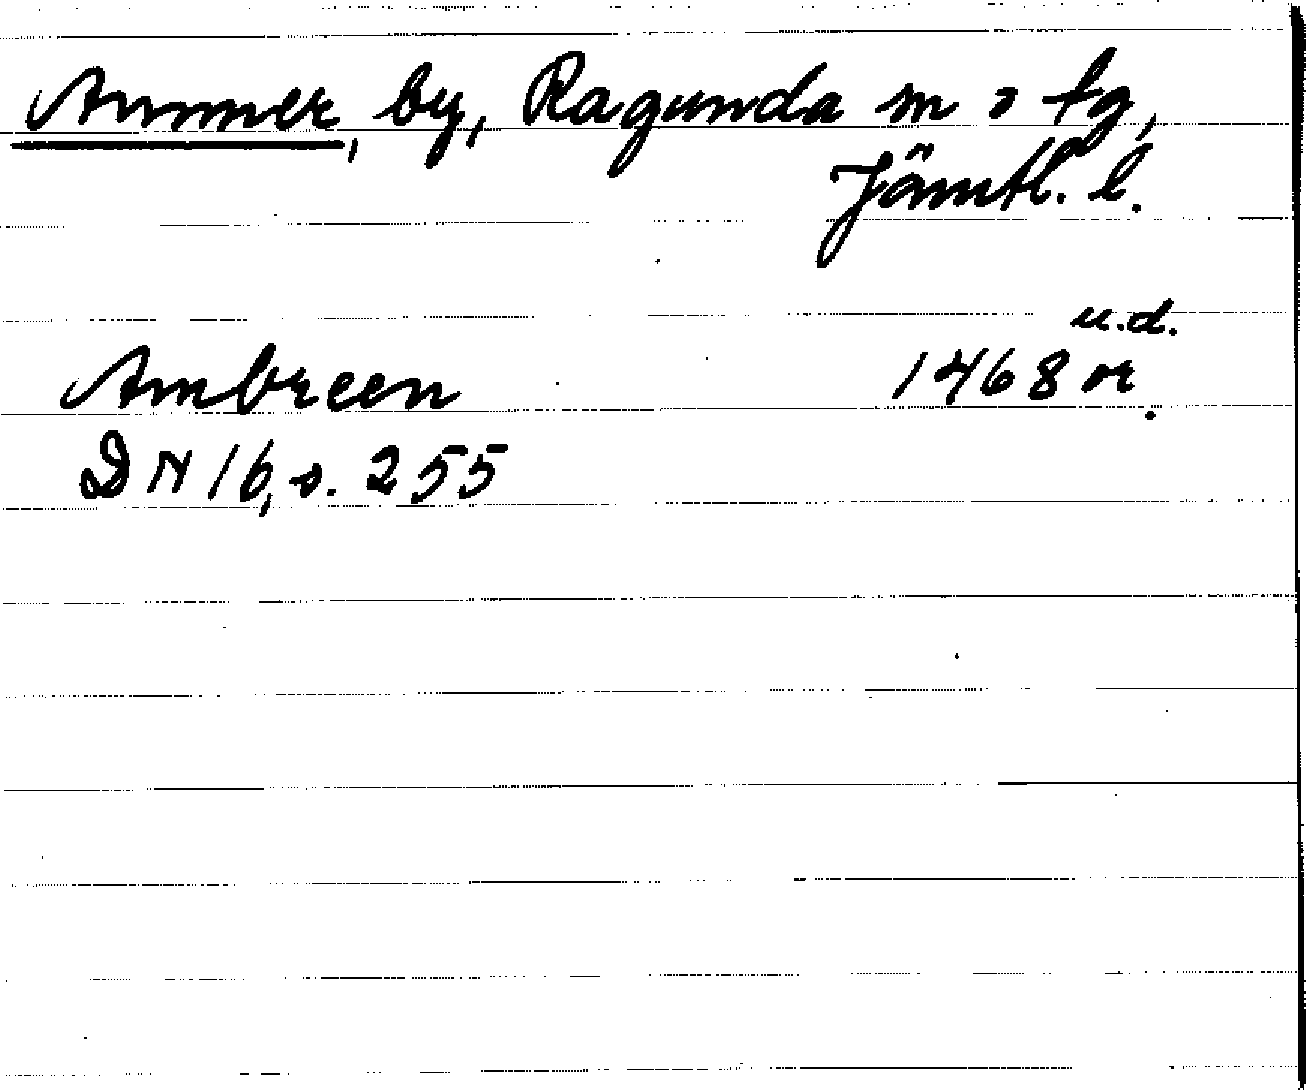 Ammer, by, Ragunda sn o tg,
Jämtl. l.
u.d.
Ambreen 1468 or.
DN 16, s. 255